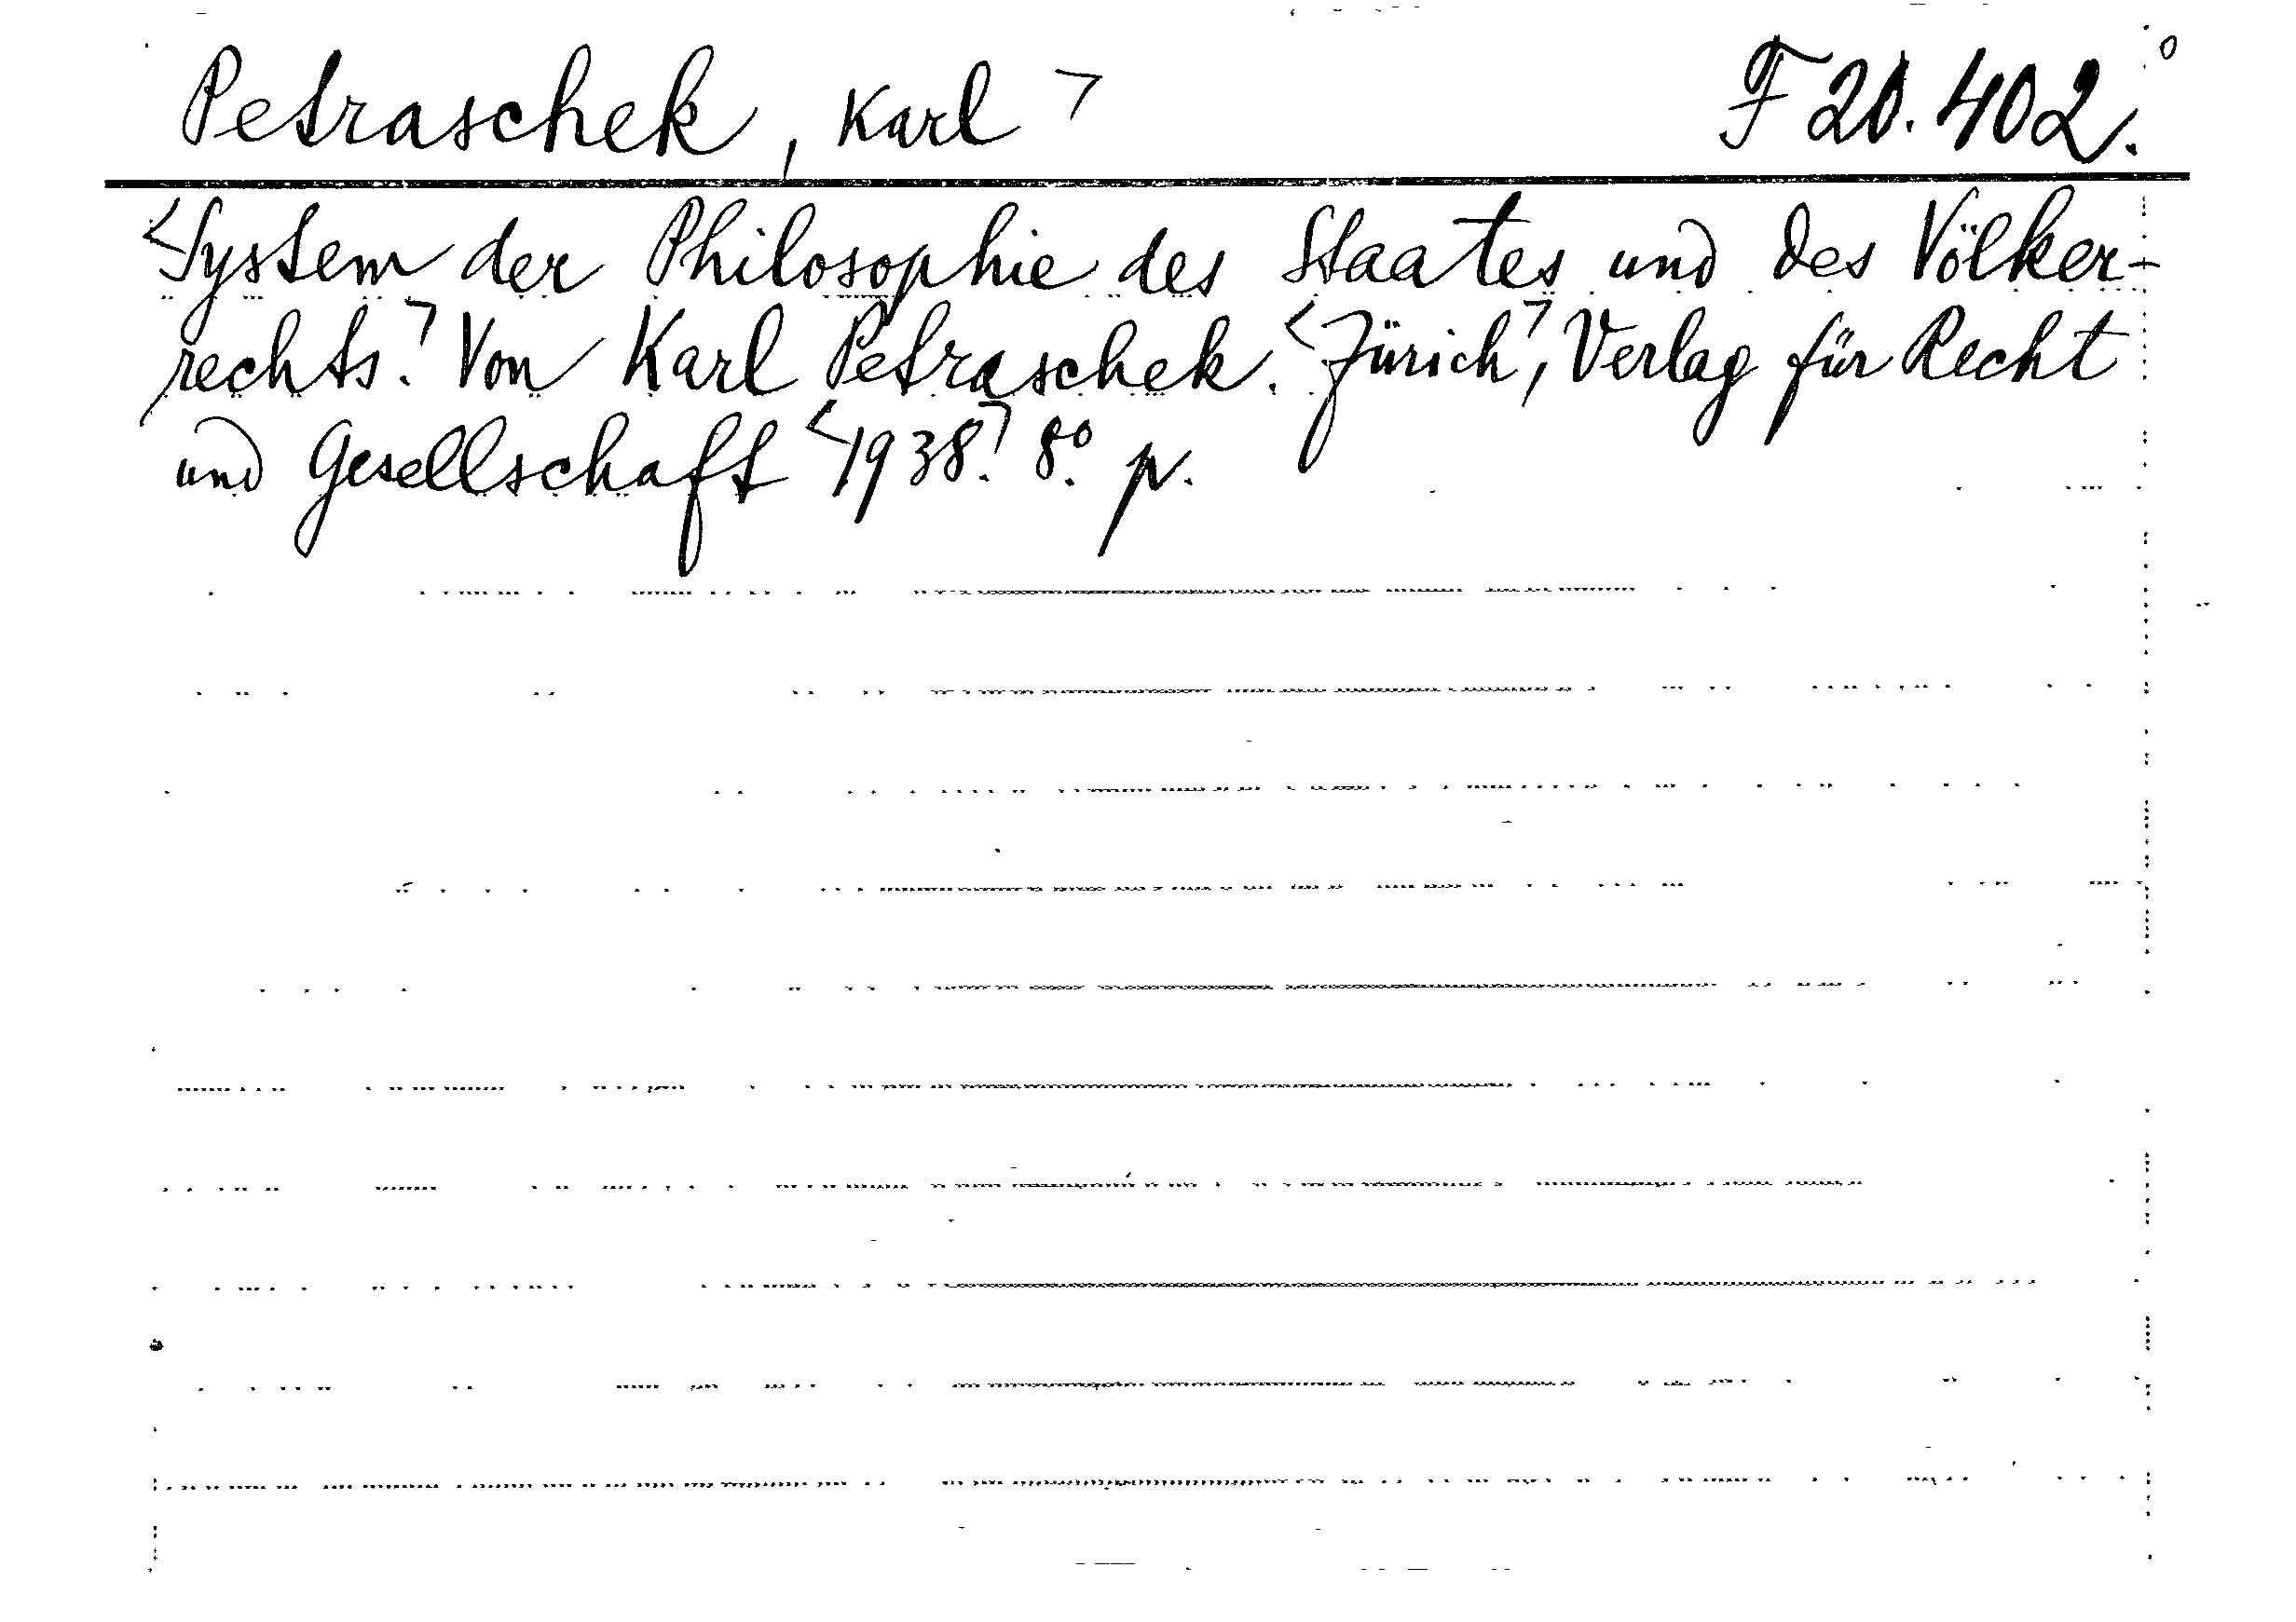 Petraschek, Karl ⌝ F 20.402.°
<System der Philosophie des Staates und des Völker-
rechts.⌝ Von Karl Petraschek. <Zürich⌝, Verlag für Recht
und Gesellschaft <1938.⌝ 8.° p.